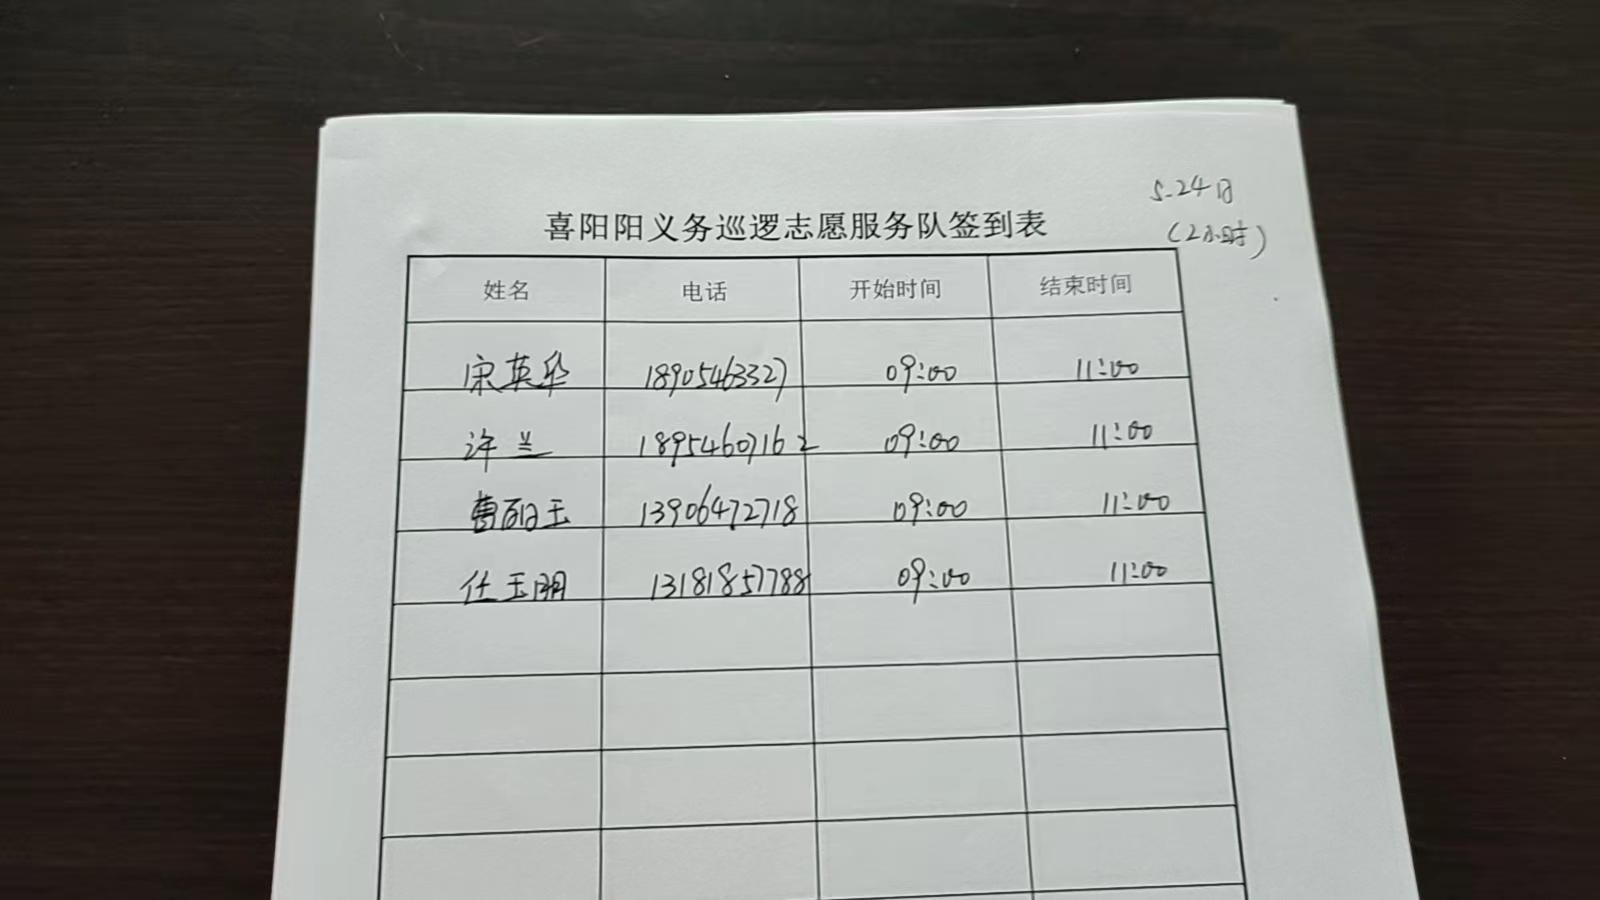 5.24日
喜阳阳义务巡逻志愿服务队签到表
(2小时)
姓名 电话 开始时间 结束时间
宋英华 18905463327 09:00 11:00
许兰 18954607162 09:00 11:00
曹阳玉 13906472718 09:00 11:00
任玉明 13181857788 09:00 11:00